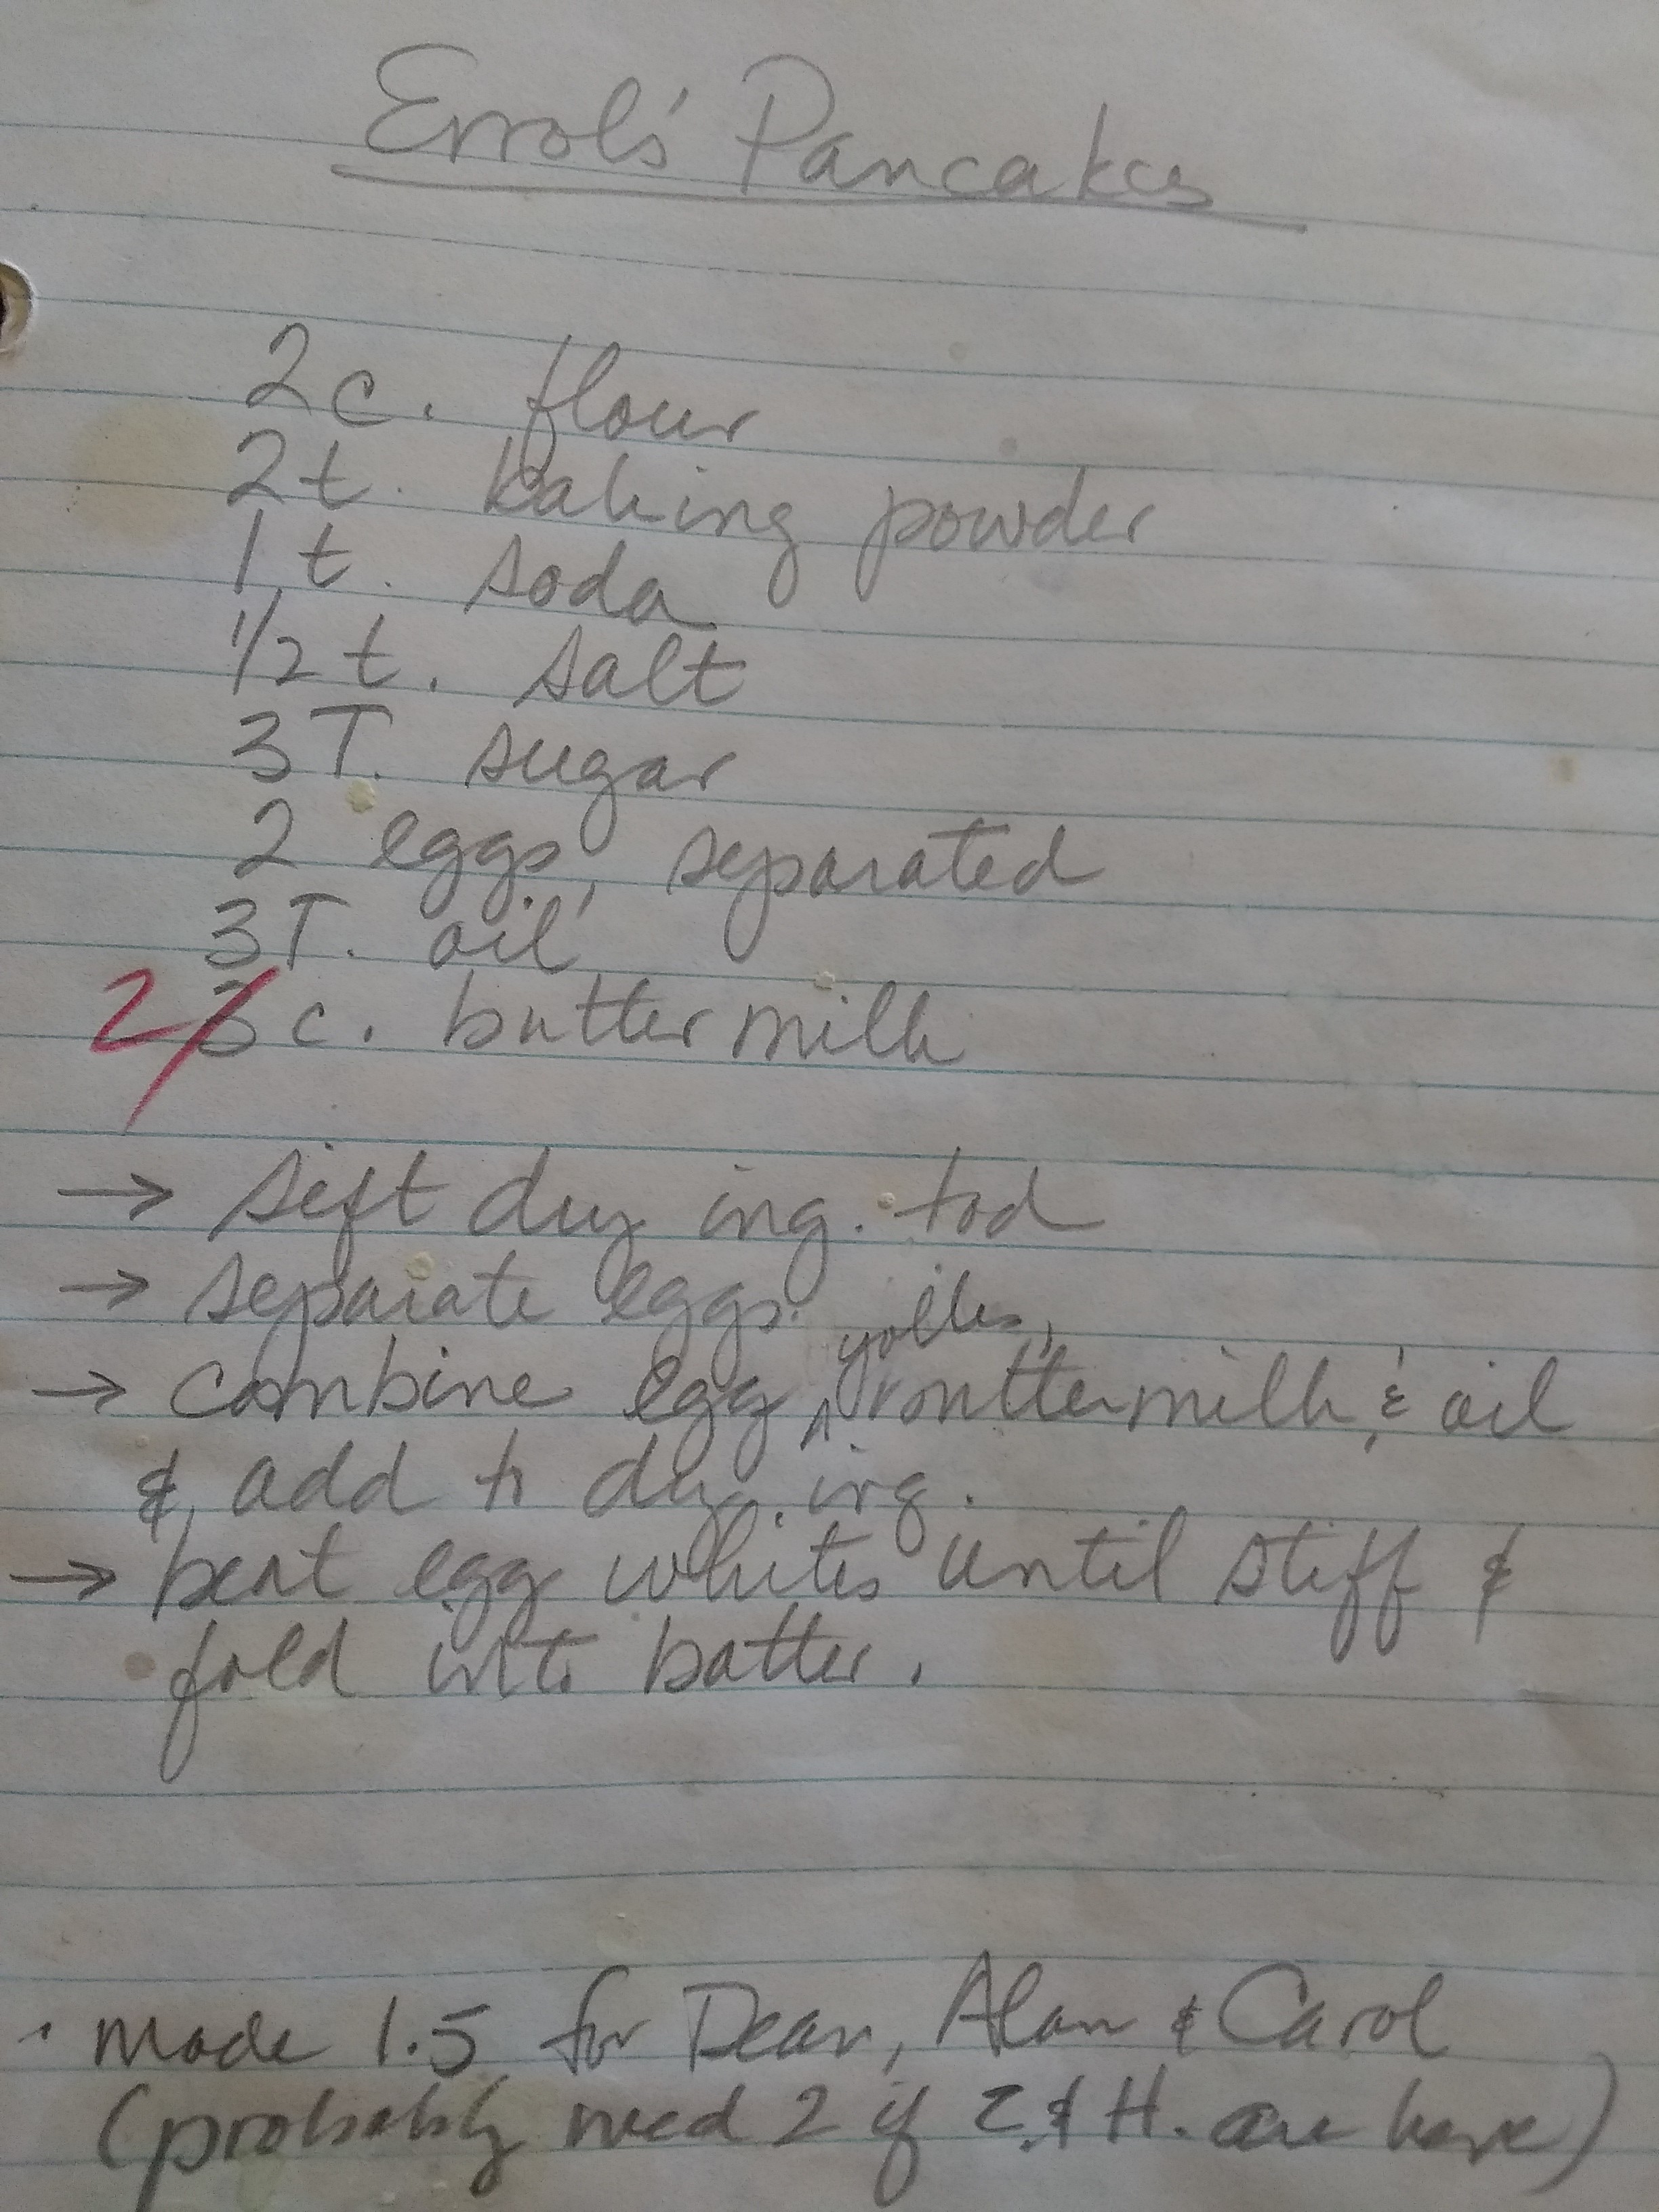 Errol's Pancakes
2 c. flour
2 t. baking powder
1 t. soda
1/2 t. salt
3 T. sugar
2 eggs, separated
3 T. oil
2 3 c. buttermilk
→ sift dry ing. tod
→ separate eggs.
→ combine egg yolks, buttermilk, & oil
& add to dry ing.
→ beat egg whites until stiff &
fold into batter.
· Made 1.5 for Dean, Alan & Carol
(probably need 2 if Z. & H. are here)